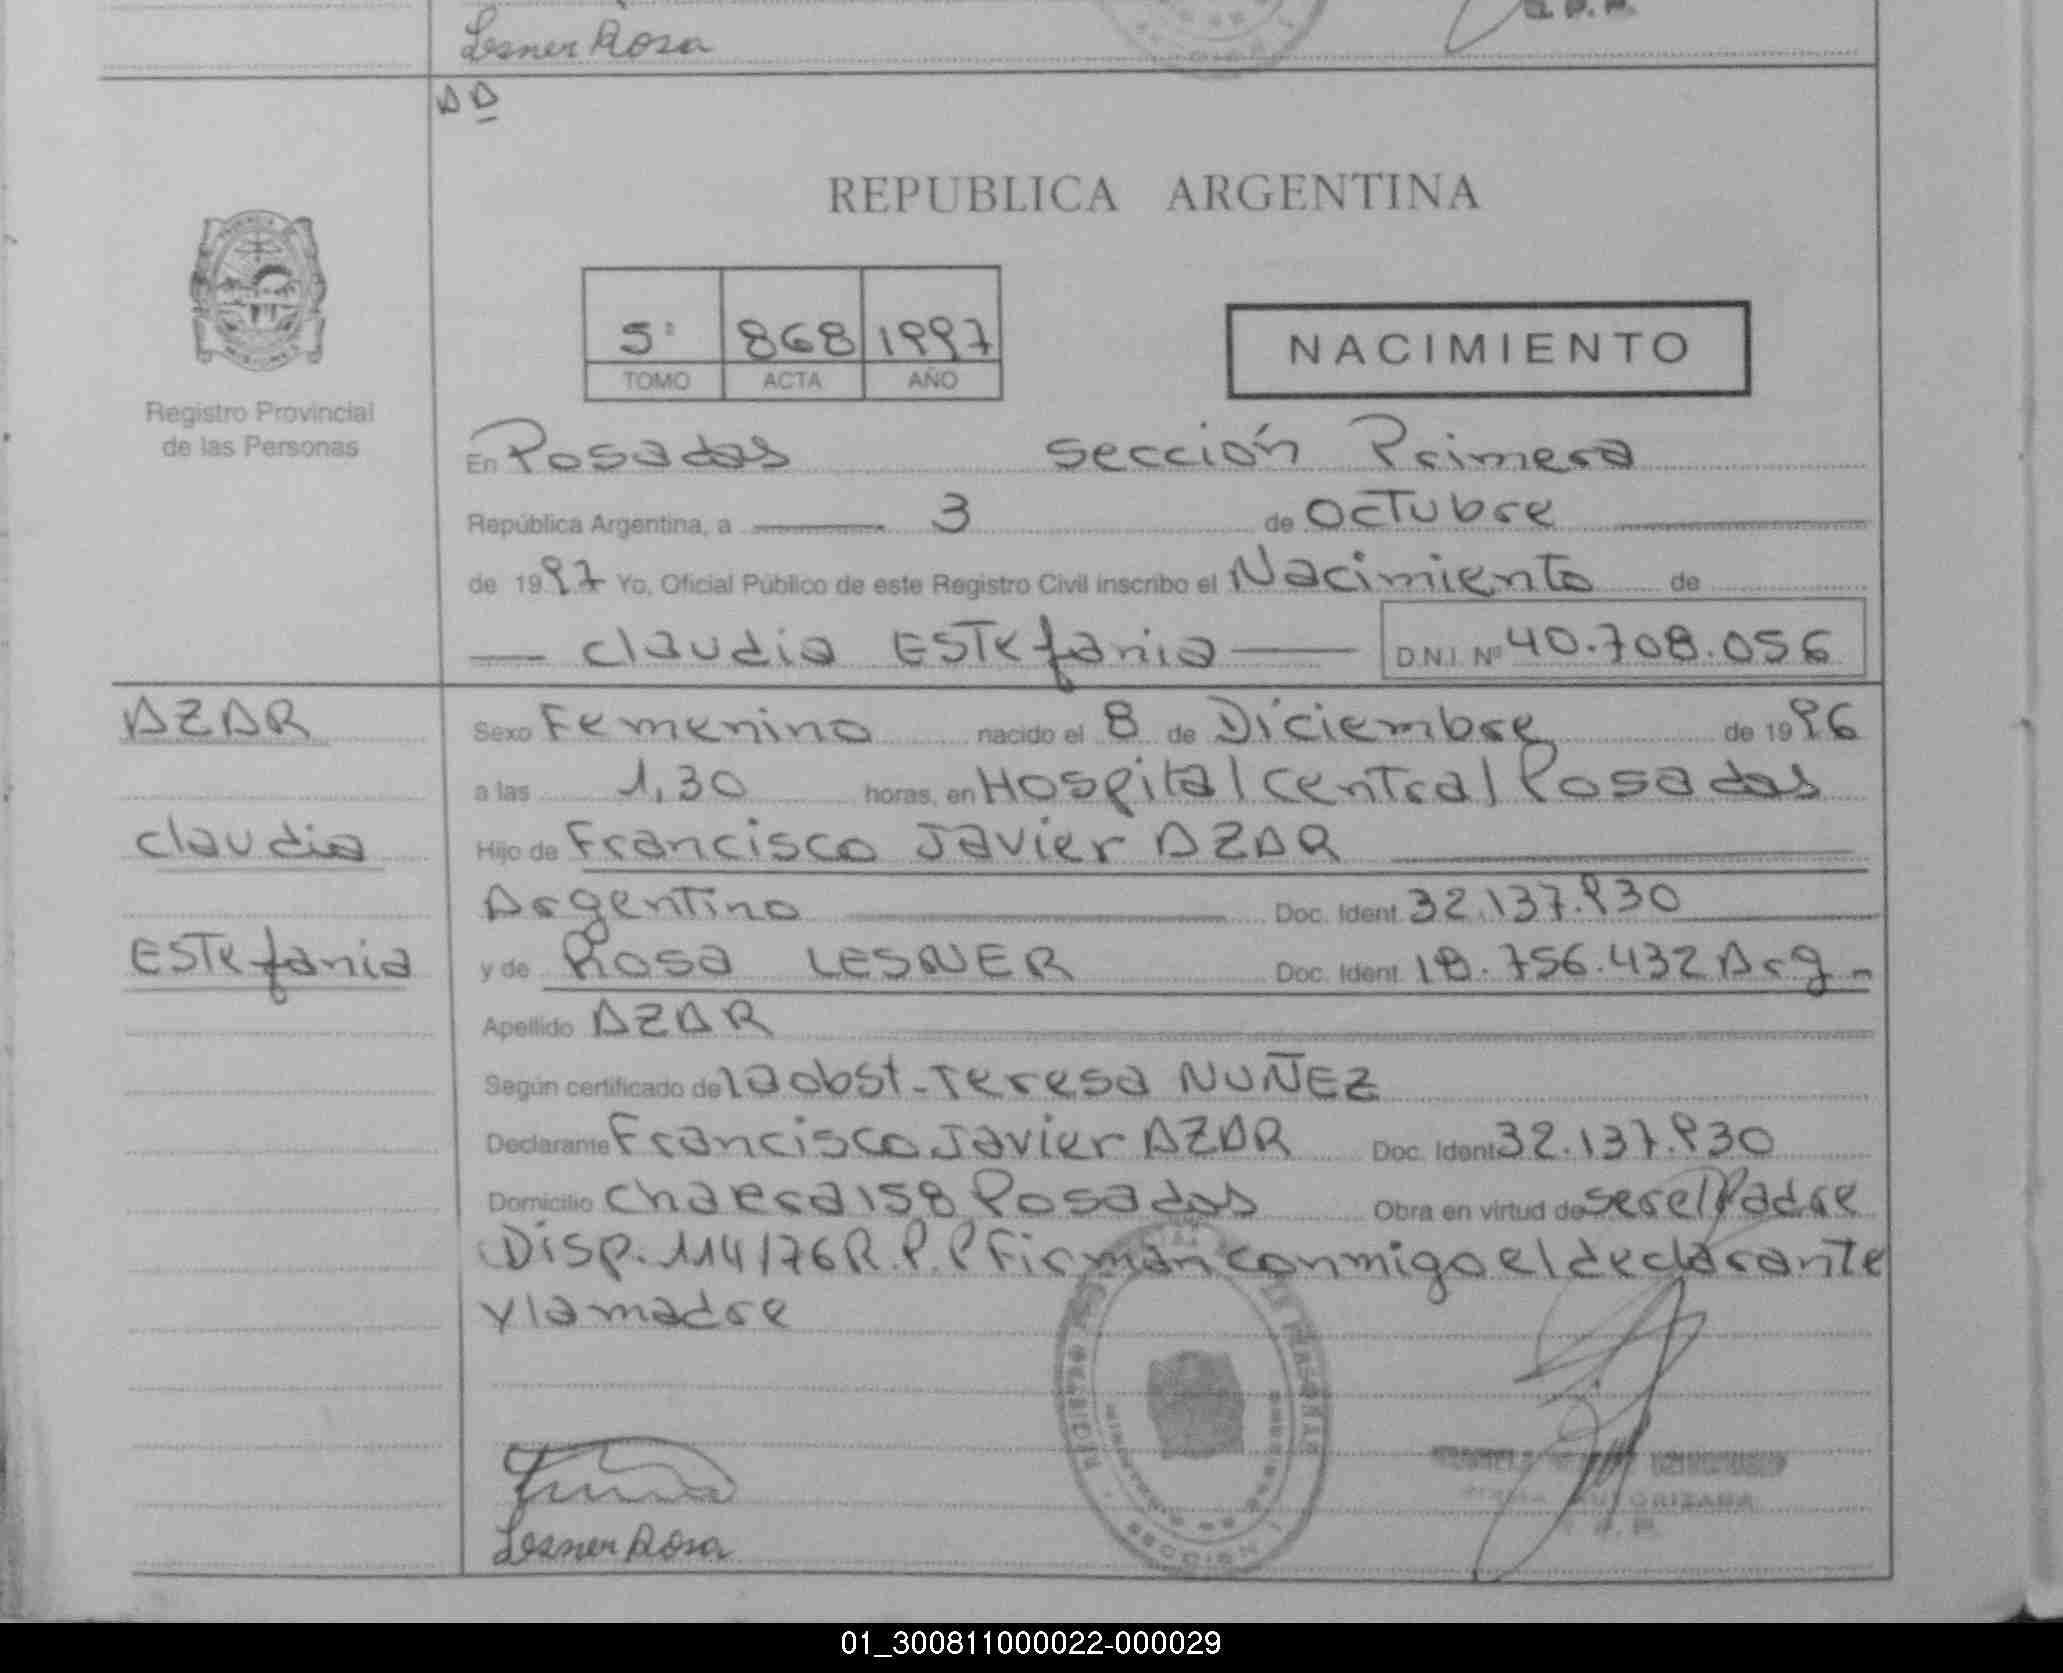 Lesner Rosa
AA
REPUBLICA ARGENTINA
5º 868 1997
TOMO ACTA AÑO
NACIMIENTO
Registro Provincial
de las Personas
En Posadas sección Primera
República Argentina, a 3 de Octubre
de 1997 Yo, Oficial Público de este Registro Civil inscribo el Nacimiento de
Claudia Estefania D.N.I. Nº 40.708.056
AZAR
Claudia
Estefania
Sexo Femenino nacido el 8 de Diciembre de 1996
a las 1,30 horas, en Hospital Central Posadas
Hijo de Francisco Javier AZAR
Argentino Doc. Ident. 32.137.930
y de Rosa LESNER Doc. Ident. 18.756.432 Arg.-
Apellido AZAR
Según certificado de la obst. Teresa NUÑEZ
Declarante Francisco Javier AZAR Doc. Ident. 32.137.930
Domicilio Chacra 158 Posadas Obra en virtud de ser el Padre
Disp. 114/76 R.P.P Firman conmigo el declarante
y la madre
Lesner Rosa
01_300811000022-000029